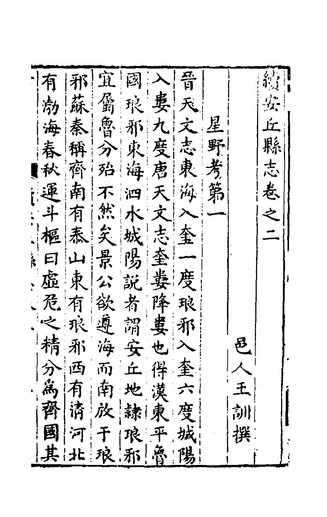 續安丘縣志卷之二
邑人王訓撰
星野考第一
晉天文志東海入奎一度琅邪入奎六度城陽
入婁九度唐天文志奎婁降婁也得漢東平魯
國琅邪東海泗水城陽說者謂安丘地隷琅邪
宜屬魯分殆不然矣景公欲遵海而南放于琅
邪蘇秦稱齊南有泰山東有琅邪西有清河北
有渤海春秋運斗樞曰虛危之精分為齊國其